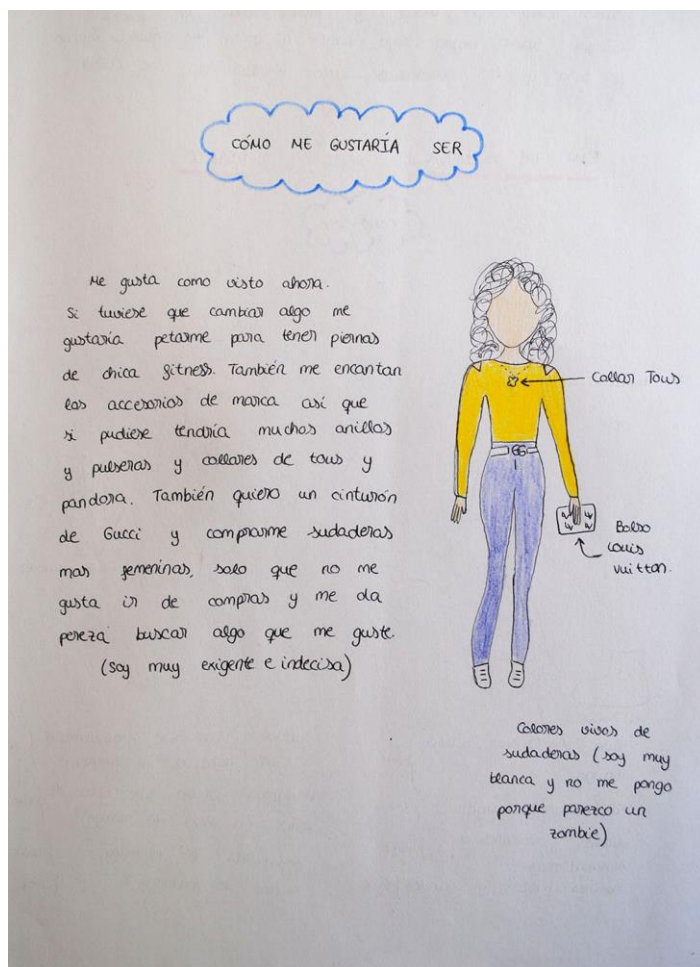 CÓMO ME GUSTARÍA SER
Me gusta como visto ahora.
Si tuviese que cambiar algo me
gustaría petarme para tener piernas
de chica fitness. También me encantan
los accesorios de marca así que
si pudiese tendría muchos anillos
y pulseras y collares de tous y
pandora. También quiero un cinturón
de Gucci y comprarme sudaderas
mas femeninas, solo que no me
gusta ir de compras y me da
pereza buscar algo que me guste.
(soy muy exigente e indecisa)
Collar Tous
Bolso
Louis
Vuitton.
Colores vivos de
sudaderas (soy muy
blanca y no me pongo
porque parezco un
zombie)